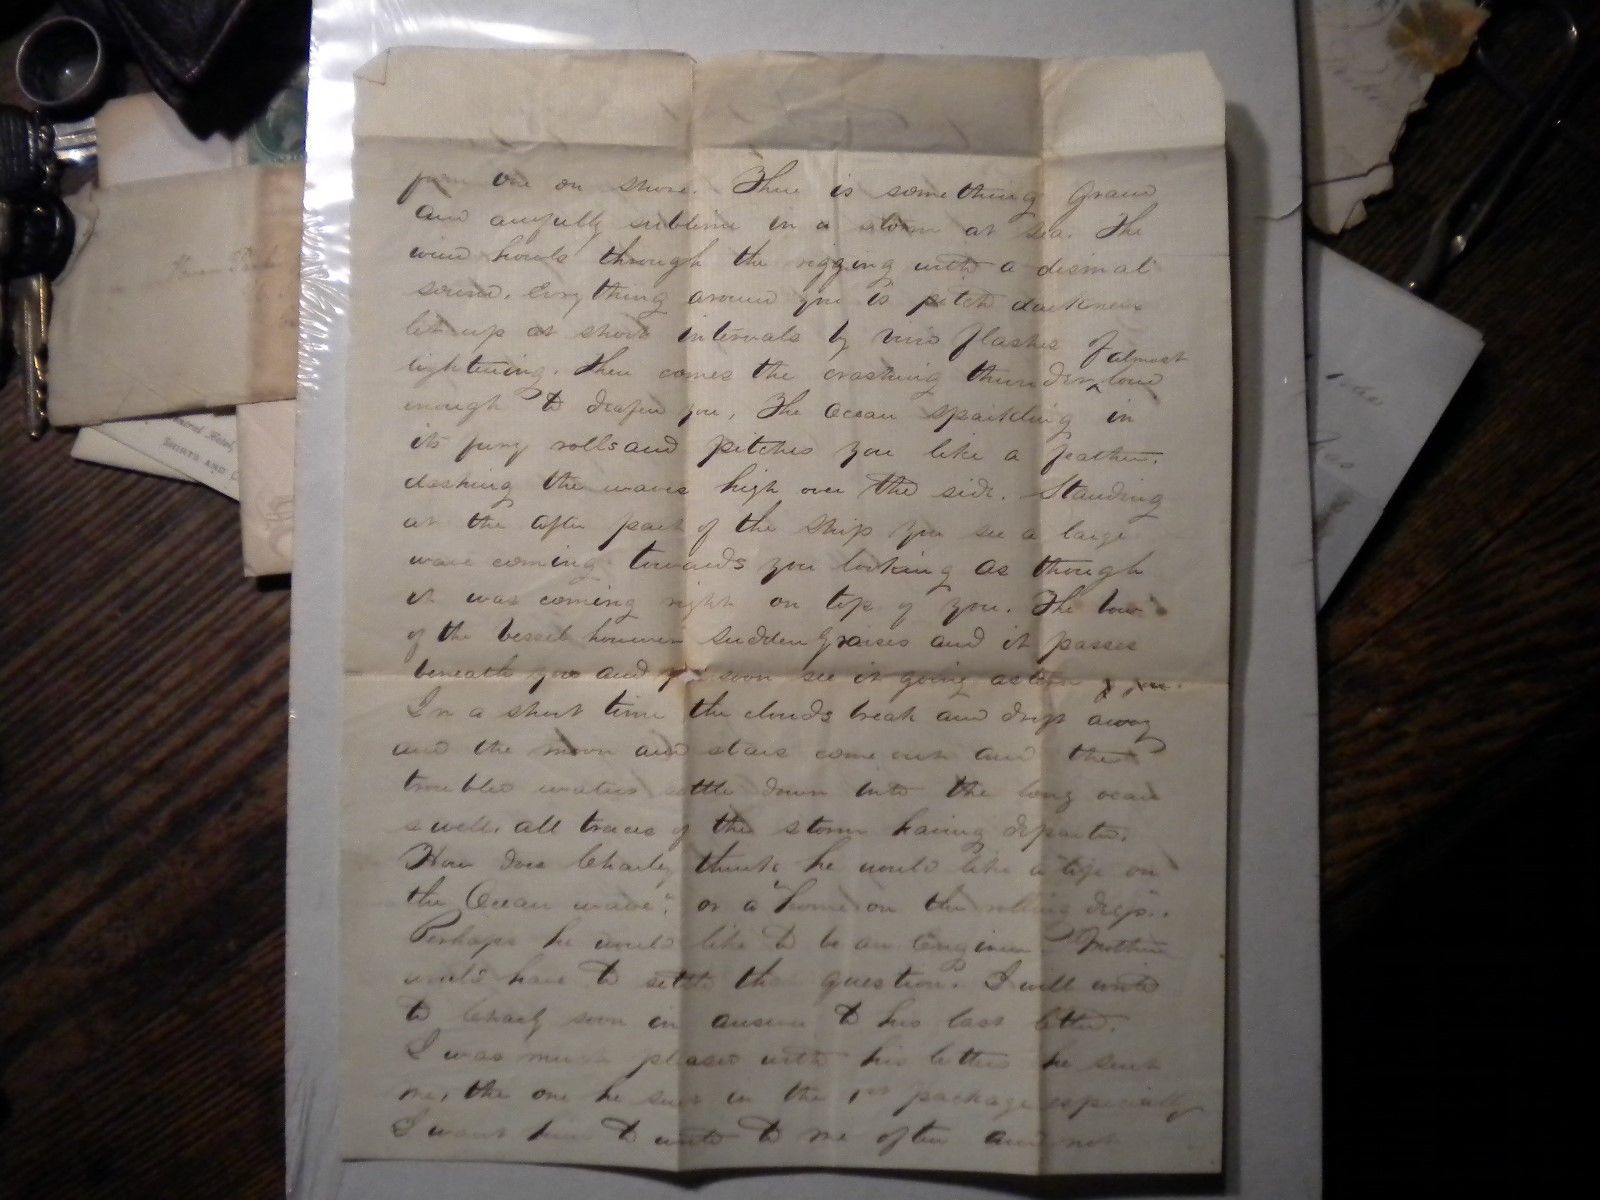 from one on shore. There is something Grand
and awfully sublime in a storm at sea. The
wind howls through the rigging with a dismal
sound. Everything around you is pitch darkness
lit up at short intervals by vivid flashes of
lightening. Then comes the crashing thunder ^ almost loud
enough to deafen you, The Ocean sparkling in
its fury rolls and pitches you like a feather.
dashing the waves high over the side. Standing
at the after part of the ship you see a large
wave coming towards you looking as though
it was coming right on top of you. The bow
of the vessel however suddenly raises and it passes
beneath you and you soon see it going astern of you.
In a short time the clouds break and drift away
and the moon and stars come out and the
troubled waters settle down into the long ocean
swell, all traces of the storm having departed.
How does Charley think he would like a "life on
the Ocean wave", or a "home on the rolling deep".
Perhaps he would like to be an Engineer Mother
would have to settle that question. I will write
to Charley soon in answer to his last letter.
I was much pleased with his letters he sent
me, the one he sent in the 1st package especially
I want him to write to me often and not
SHIRTS AND